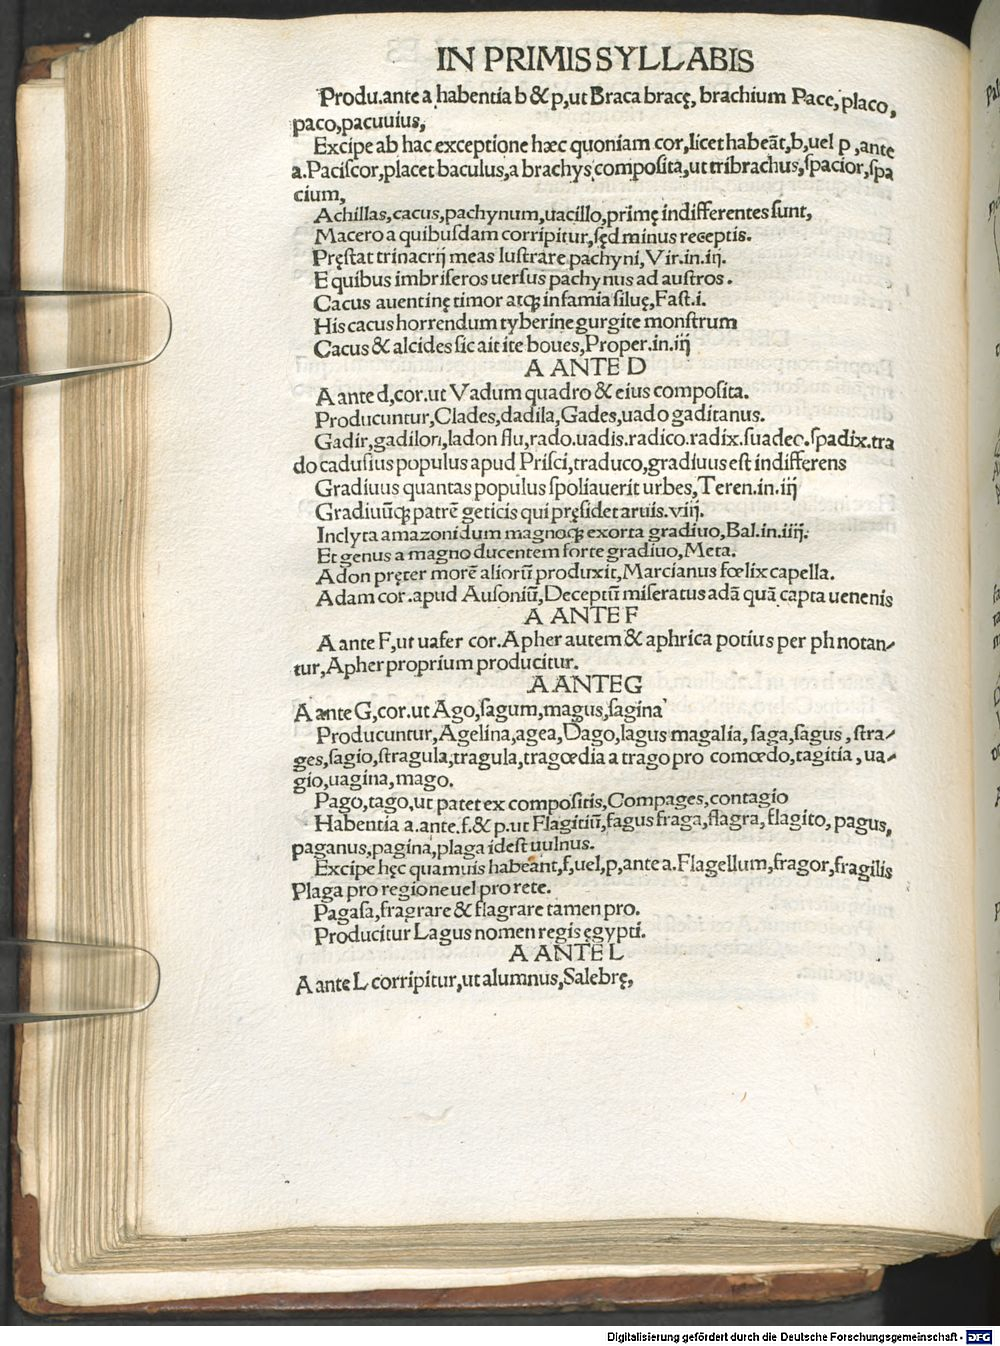 IN PRIMIS SYLLABIS
Produ.ante a habentia b & p,ut Braca bracę, brachium Pace, placo,
paco,pacuuius,
Excipe ab hac exceptione hæc quoniam cor,licet habeāt,b,uel p ,ante
a.Paciſcor,placet baculus,a brachys compoſita,ut tribrachus,ſpacior,ſpa
cium,
Achillas,cacus,pachynum,uacillo,primę indifferentes ſunt,
Macero a quibuſdam corripitur,ſęd minus receptis.
Pręſtat trinacrij meas luſtrare pachyni,Vir.in.iij.
E quibus imbriferos uerſus pachynus ad auſtros.
Cacus auentinę timor atqꝫ infamia ſiluę,Faſt.i.
His cacus horrendum tyberine gurgite monſtrum
Cacus & alcides ſic ait ite boues,Proper.in.iij
A ANTE D
A ante d,cor.ut Vadum quadro & eius compoſita.
Producuntur,Clades,dadila,Gades,uado gaditanus.
Gadir,gadilon,ladon flu,rado.uadis.radico.radix.ſuadeo.ſpadix.tra
do caduſius populus apud Priſci,traduco,gradiuus eſt indifferens
Gradiuus quantas populus ſpoliauerit urbes,Teren.in.iij
Gradiuūqꝫ patrē geticis qui pręſidet aruis.viij.
Inclyta amazonidum magnoqꝫ exorta gradiuo,Bal.in.iiij.
Et genus a magno ducentem forte gradiuo,Meta.
Adon pręter morē aliorū produxit,Marcianus fœlix capella.
Adam cor.apud Auſoniū,Deceptū miſeratus adā quā capta uenenis
A ANTE F
A ante F,ut uafer cor.Apher autem & aphrica potius per ph notan-
tur,Apher proprium producitur.
A ANTE G
A ante G,cor.ut Ago,ſagum,magus,ſagina
Producuntur,Agelina,agea,Dago,lagus magalia,ſaga,ſagus,ſtra-
ges,ſagio,ſtragula,tragula,tragœdia a trago pro comœdo,tagitia,ua-
gio,uagina,mago.
Pago,tago,ut patet ex compoſitis,Compages,contagio
Habentia a.ante.f.& p.ut Flagitiū,fagus fraga,flagra,flagito,pagus,
paganus,pagina,plaga ideſt uulnus.
Excipe hęc quamuis habeant,f,uel,p,ante a.Flagellum,fragor,fragilis
Plaga pro regione uel pro rete.
Pagaſa,fragrare & flagrare tamen pro.
Producitur Lagus nomen regis ęgypti.
A ANTE L
A ante L corripitur,ut alumnus,Salebrę,
Digitalisierung gefördert durch die Deutsche Forschungsgemeinschaft - DFG